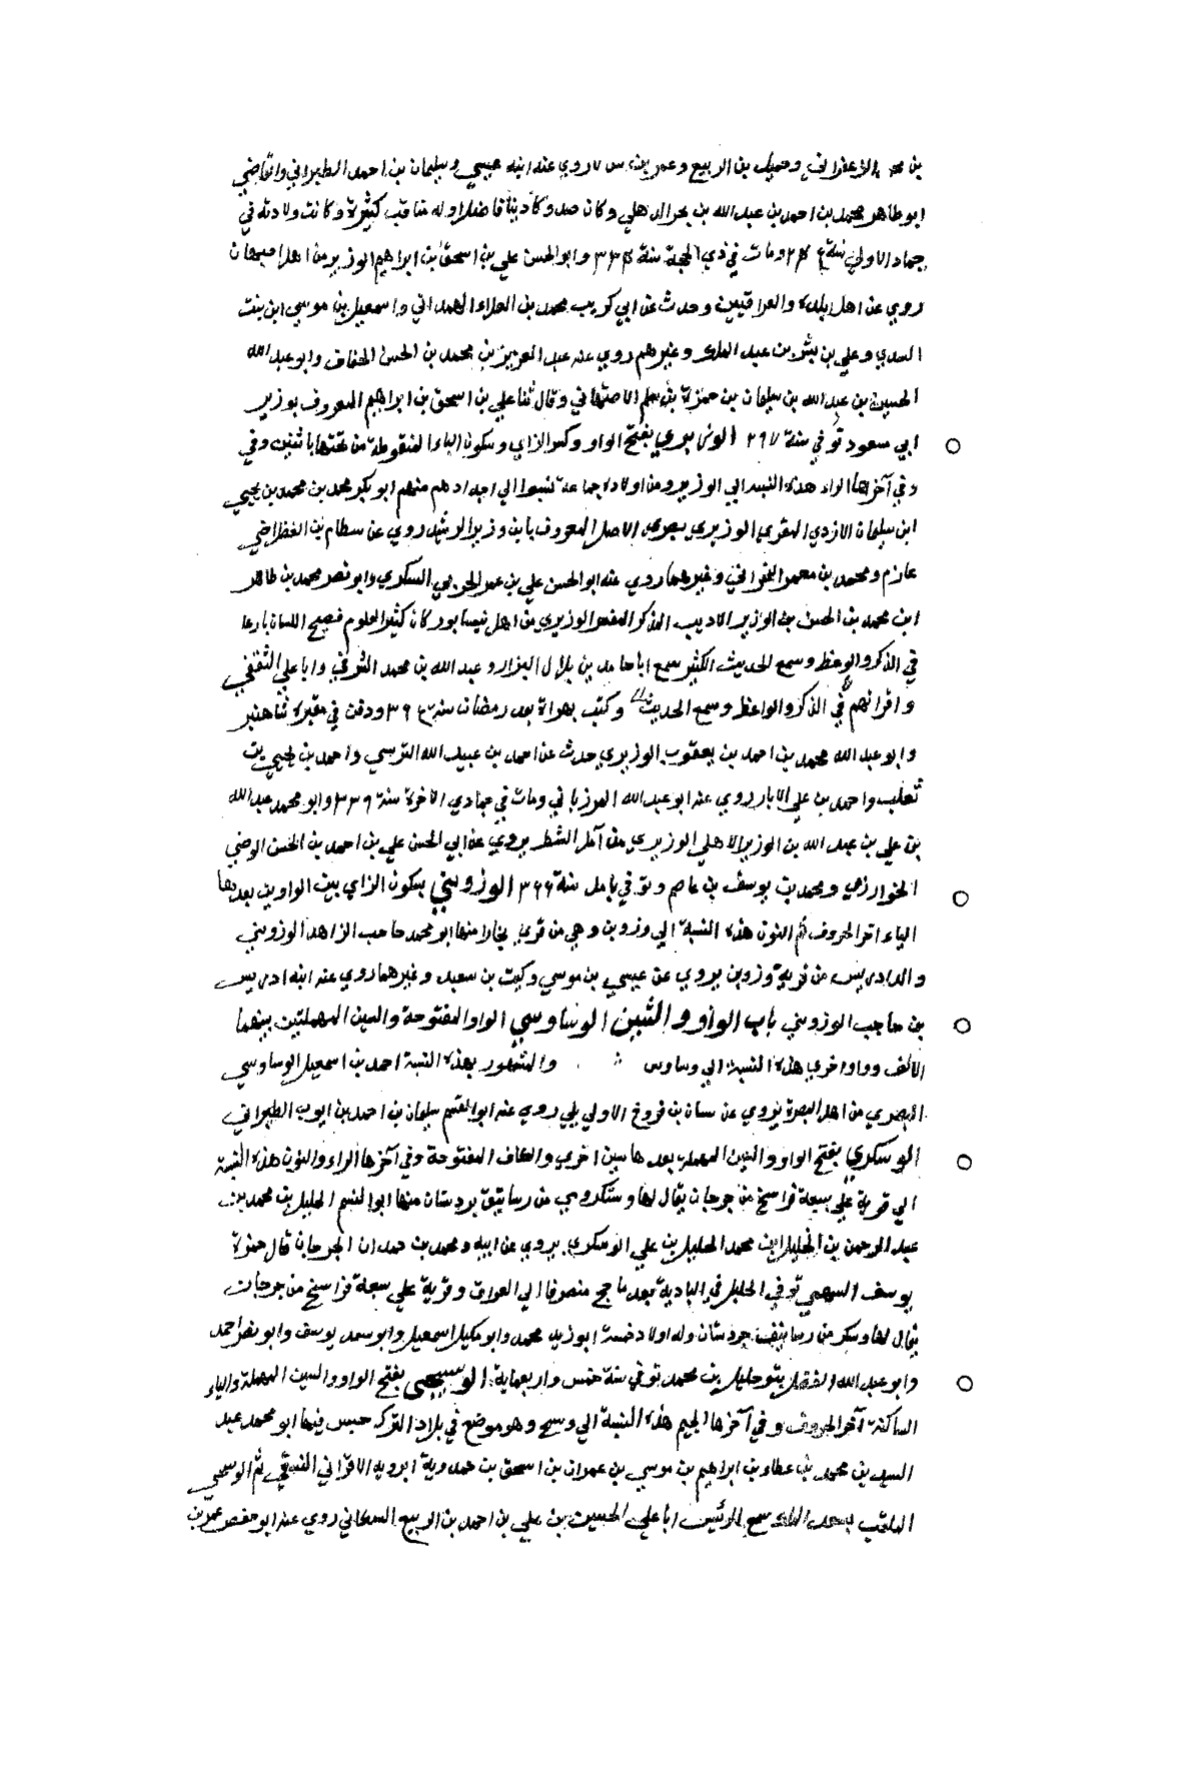 بن محمد الزعفراني وحميد بن الربيع وعمر بن روي عنه ابنه عيسي وسليمان بن احمد الطبراني والقاضي
ابو طاهر محمد بن احمد بن عبد الله بن بحر الذهلي وكان صدوقا دينا فاضلا وله مناقب كثيرة وكانت ولادته في
جماد الاولي سنة ومات في ذي الحجة سنة وابو الحسن علي بن اسحق بن ابراهيم الوزير من اهل اصبهان
روي عن اهل بلده والعراقيين وحدث عن ابي كريب محمد بن العلاء الهمداني واسمعيل بن موسي ابن بنت
السدي وعلي بن بشر بن عبد الملك وغيرهم روي عنه عبد العزيز بن محمد بن الحسن الخفاف وابو عبد الله
الحسين بن عبد الله بن سليمان بن حمزة بن سلم الاصبهاني وقال ثنا علي بن اسحق بن ابراهيم المعروف بوزير
ابي مسعود توفي سنة ٢٩٧ الوزيري بفتح الواو وكسر الزاي وسكون الياء المنقوطة من تحتها باثنين وفي
وفي آخرها الراء هذه النسبة الي الوزير ومن اولاده جماعة نسبوا الي اجدادهم منهم ابو بكر محمد بن محمد بن يحيي
ابن سليمان الازدي المقري الوزيري الاصل المعروف بابن وزير الرشيد روي عن
عازم ومحمد بن معمر البحراني وغيرهما روي عنه ابو الحسن علي بن عمر الحربي السكري وابو نصر محمد بن طاهر
ابن محمد بن الحسن بن الوزير الاديب المذكر المفسر الوزيري من اهل نيسابور كان كثير العلوم فصيح اللسان بارعا
في الذكر والوعظ وسمع الحديث الكثير سمع ابا حامد بن بلال البزار وعبد الله بن محمد الشرقي وابا علي الثقفي
واقرانهم في الذكر والواعظ وسمع الحديث وكتب بهراة رمضان سنة ودفن في مقبرة شاهنبر
وابو عبد الله محمد بن احمد بن يعقوب الوزيري حدث عن احمد بن عبيد الله النرسي واحمد بن يحيي بن
ثعلب واحمد بن علي الابار روي عنه ابو عبد الله المرزباني ومات في جمادي الاخرة سنة ٣٣٩ وابو محمد عبد الله
بن علي بن عبد الله بن الوزير الوزيري من آمل الشط يروي عن ابي الحسن علي بن احمد بن الحسن الوضي
الخوارزمي ومحمد بن يوسف بن عاصم وتوفي بامل سنة ٣٦٦ الوزويني بسكون الزاي بين الواوين بعدها
الياء اخر الحروف ثم النون هذه النسبة الي وزوين وهي من قري بخارا منها ابو محمد حاجب الزاهد الوزويني
والد ادريس من قرية وزوين يروي عن عيسي بن موسي وكيت بن سعيد وغيرهما روي عنه ابنه ادريس
بن حاجب الوزويني باب الواو والشين الوساوسي الواو المفتوحة والسين المهملتين بينهما
الالف وواو اخري هذه النسبة الي وساوس والمشهور بهذه النسبة احمد بن اسمعيل الوساوسي
البصري من اهل البصرة يروي عن سنان بن فروخ الاولي يلي روي عنه ابو القسم سليمان بن احمد بن ايوب الطبراني
الوسكري بفتح الواو والسين المهملة بعدها سين اخري والكاف المفتوحة وفي آخرها الراء والنون هذه النسبة
الي قرية علي سبعة فراسخ من جرجان يقال لها وسكروي من رساتيق بردستان منها ابو القسم الخليل بن محمد بن
عبد الرحمن بن الخليل بن محمد الخليل بن علي الوسكري يروي عن ابيه ومحمد بن حمدان الجرجان قال حمزة
يوسف السهمي توفي الخليل في البادية بعد ما حج منصرفا الي العراق وقرية علي سبعة فراسخ من جرجان
يقال لها وسكر من رساتيق جردستان وله اولاد خمسة ابو زيد محمد وابو مكيل اسمعيل وابو سعد يوسف وابو نصر احمد
وابو عبد الله الفضل بنو خليل بن محمد توفي سنة خمس واربعماية الوسيجي بفتح الواو والسين المهملة والياء
الساكنة آخر الحروف وفي آخرها الجيم هذه النسبة الي وسيج وهو موضع في بلاد الترك حبس فيها ابو محمد عبد
السيد بن محمد بن عطاء بن ابراهيم بن موسي بن عمران بن اسحق بن حمدوية ابرويه الافراني النسفي ثم الوسيجي
الملقب سمع الرئيس ابا علي الحسين بن علي بن احمد بن الربيع روي عنه ابو حفص عمر بن